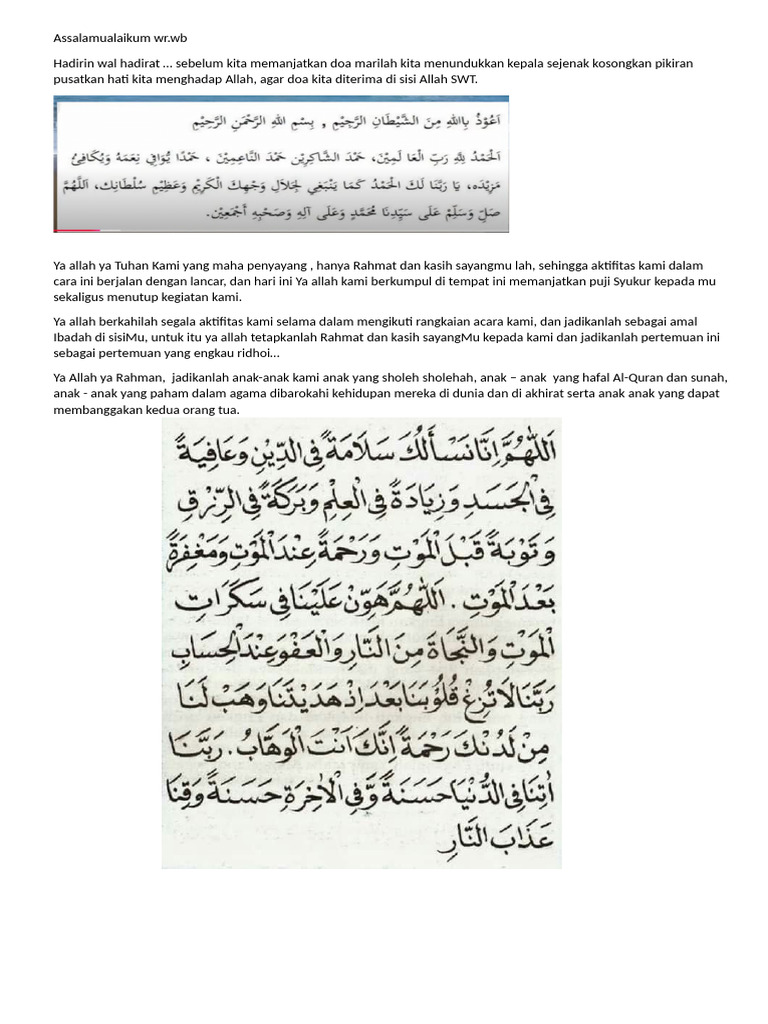 Assalamualaikum wr.wb
Hadirin wal hadirat … sebelum kita memanjatkan doa marilah kita menundukkan kepala sejenak kosongkan pikiran
pusatkan hati kita menghadap Allah, agar doa kita diterima di sisi Allah SWT.
اَعُوْذُ بِاللهِ مِنَ الشَّيْطَانِ الرَّجِيْمِ , بِسْمِ اللهِ الرَّحْمَنِ الرَّحِيْمِ
اَلْحَمْدُ لِلهِ رَبِّ الْعَا لَمِيْنَ، حَمْدَ الشَّاكِرِيْن حَمْدَ النَّاعِمِيْنَ ، حَمْدًا يُوَافِي نِعَمَهُ وَيُكَافِئُ
مَزِيْدَه، يَا رَبَّنَا لَكَ الْحَمْدُ كَمَا يَنْبَغِي لِجَلاَلِ وَجْهِكَ الْكَرِيْمِ وَعَظِيْمِ سُلْطَانِك، اَللَّهُمَّ
صَلِّ وَسَلِّمْ عَلَى سَيِّدِنَا مُحَمَّدٍ وَعَلَى آلِهِ وَصَحْبِهِ أَجْمَعِيْن.
Ya allah ya Tuhan Kami yang maha penyayang , hanya Rahmat dan kasih sayangmu lah, sehingga aktifitas kami dalam
cara ini berjalan dengan lancar, dan hari ini Ya allah kami berkumpul di tempat ini memanjatkan puji Syukur kepada mu
sekaligus menutup kegiatan kami.
Ya allah berkahilah segala aktifitas kami selama dalam mengikuti rangkaian acara kami, dan jadikanlah sebagai amal
Ibadah di sisiMu, untuk itu ya allah tetapkanlah Rahmat dan kasih sayangMu kepada kami dan jadikanlah pertemuan ini
sebagai pertemuan yang engkau ridhoi…
Ya Allah ya Rahman,  jadikanlah anak-anak kami anak yang sholeh sholehah, anak – anak  yang hafal Al-Quran dan sunah,
anak - anak yang paham dalam agama dibarokahi kehidupan mereka di dunia dan di akhirat serta anak anak yang dapat
membanggakan kedua orang tua.
اَللّٰهُمَّ اِنَّا نَسْأَلُكَ سَلَامَةً فِى الدِّيْنِ وَعَافِيَةً
فِى الْجَسَدِ وَزِيَادَةً فِى الْعِلْمِ وَبَرَكَةً فِى الرِّزْقِ
وَتَوْبَةً قَبْلَ الْمَوْتِ وَرَحْمَةً عِنْدَ الْمَوْتِ وَمَغْفِرَةً
بَعْدَ الْمَوْتِ . اَللّٰهُمَّ هَوِّنْ عَلَيْنَا فِى سَكَرَاتِ
الْمَوْتِ وَالنَّجَاةَ مِنَ النَّارِ وَالْعَفْوَ عِنْدَ الْحِسَابِ
رَبَّنَا لَا تُزِغْ قُلُوْبَنَا بَعْدَ اِذْ هَدَيْتَنَا وَهَبْ لَنَا
مِنْ لَدُنْكَ رَحْمَةً اِنَّكَ اَنْتَ الْوَهَّابُ . رَبَّنَا
اٰتِنَا فِى الدُّنْيَا حَسَنَةً وَّفِى الْاٰخِرَةِ حَسَنَةً وَقِنَا
عَذَابَ النَّارِ